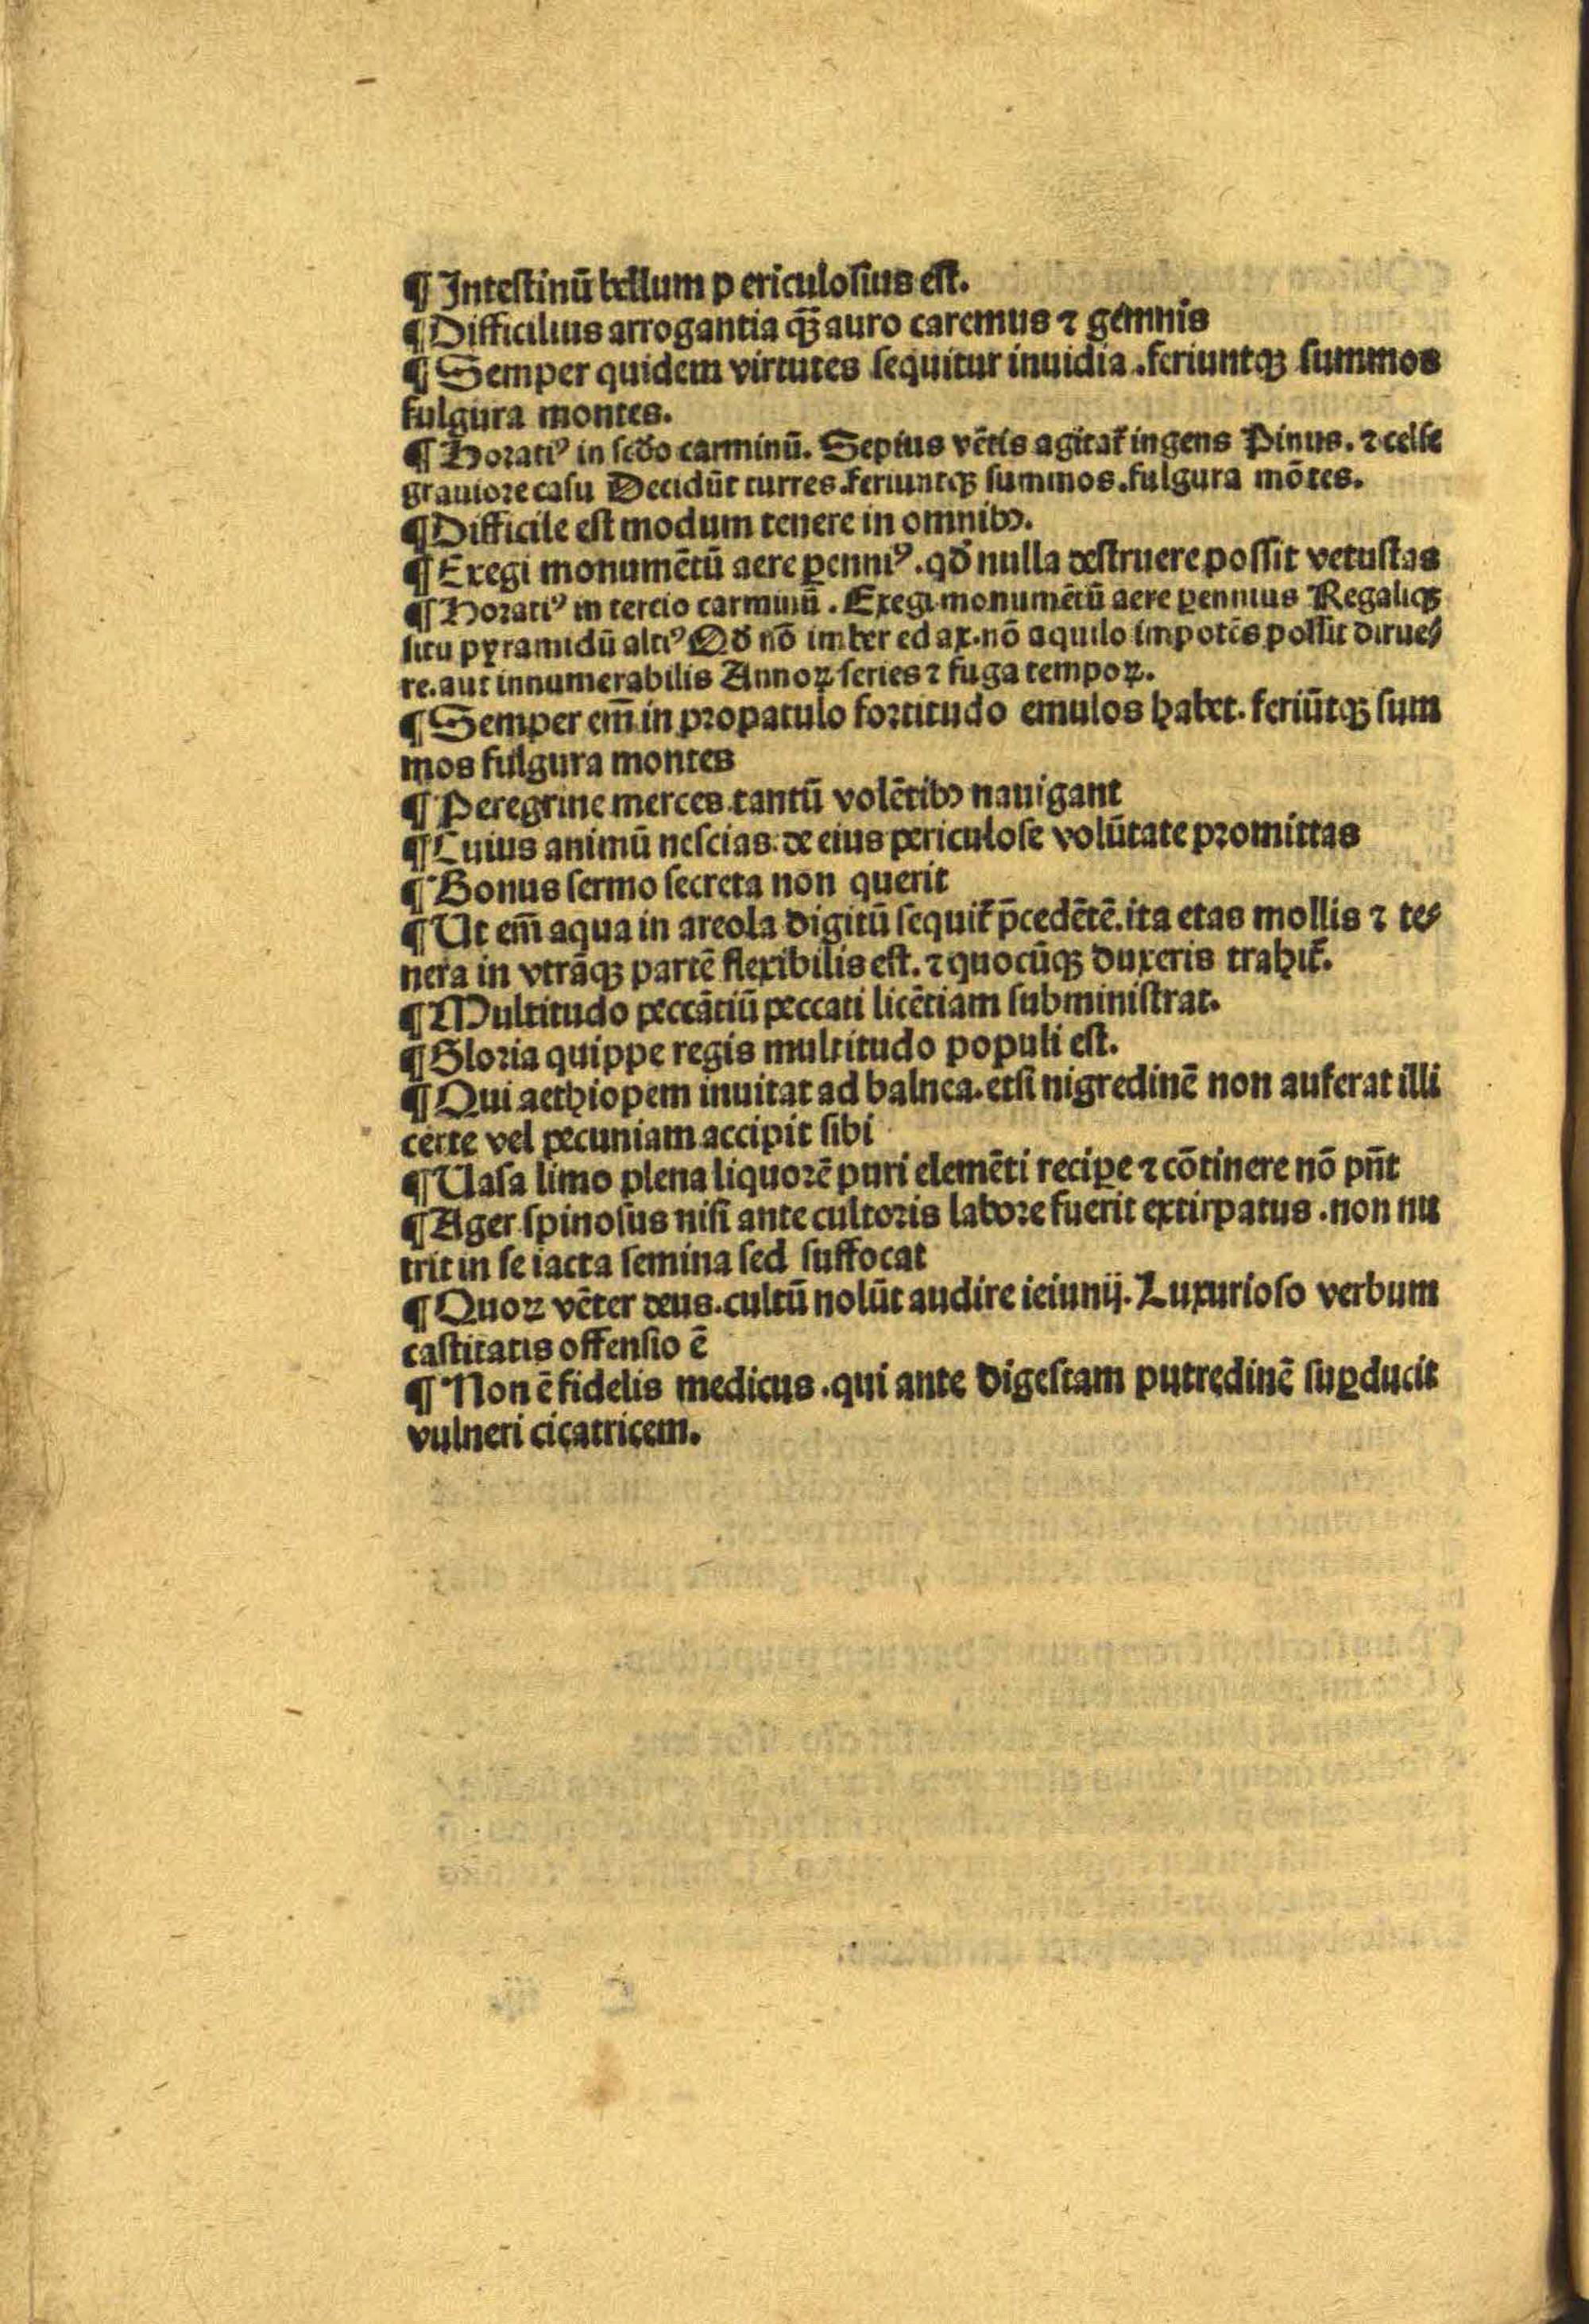 ¶ Intestinū bellum p ericulosius est.
¶ Difficilius arrogantia qꝫ auro caremus ⁊ gemmis
¶ Semper quidem virtutes sequitur inuidia .feriuntqꝫ summos
fulgura montes.
¶ Horatiꝰ in scd̄o carminū. Sepius vētis agitat̉ ingens Pinus. ⁊ celse
grauiore casu Decidūt turres .feriuntqꝫ summos .fulgura mōtes.
¶ Difficile est modum tenere in omnibꝰ.
¶ Exegi monumētū aere ꝑenniꝰ .qd̄ nulla destruere possit vetustas
¶ Horatiꝰ in tercio carminū . Exegi monumētū aere ꝑennius Regaliqꝫ
situ pyramidū altiꝰ Qd̄ nō imber ed ax .nō aquilo impotēs possit dirue⸗
re. aut innumerabilis Annoꝝ series ⁊ fuga tempoꝝ.
¶ Semper em̄ in propatulo fortitudo emulos habet. feriūtqꝫ sum
mos fulgura montes
¶ Peregrine merces .tantū volētibꝰ nauigant
¶ Cuius animū nescias. de eius periculose volūtate promittas
¶ Bonus sermo secreta non querit
¶ Ut em̄ aqua in areola digitū sequit̉ p̄cedētē. ita etas mollis ⁊ te⸗
nera in vtrāqꝫ partē flexibilis est. ⁊ quocūqꝫ duxeris trahit̉.
¶ Multitudo peccātiū peccati licētiam subministrat.
¶ Gloria quippe regis multitudo populi est.
¶ Qui aethiopem inuitat ad balnea. etsi nigredinē non auferat illi
certe vel pecuniam accipit sibi
¶ Uasa limo plena liquorē puri elemēti reciꝑe ⁊ cōtinere nō pn̄t
¶ Ager spinosus nisi ante cultoris labore fuerit extirpatus .non nu
trit in se iacta semina sed suffocat
¶ Quoꝝ vēter deus .cultū nolūt audire ieiunij. Luxurioso verbum
castitatis offensio ē
¶ Non ē fidelis medicus .qui ante digestam putredinē suꝑducit
vulneri cicatricem.